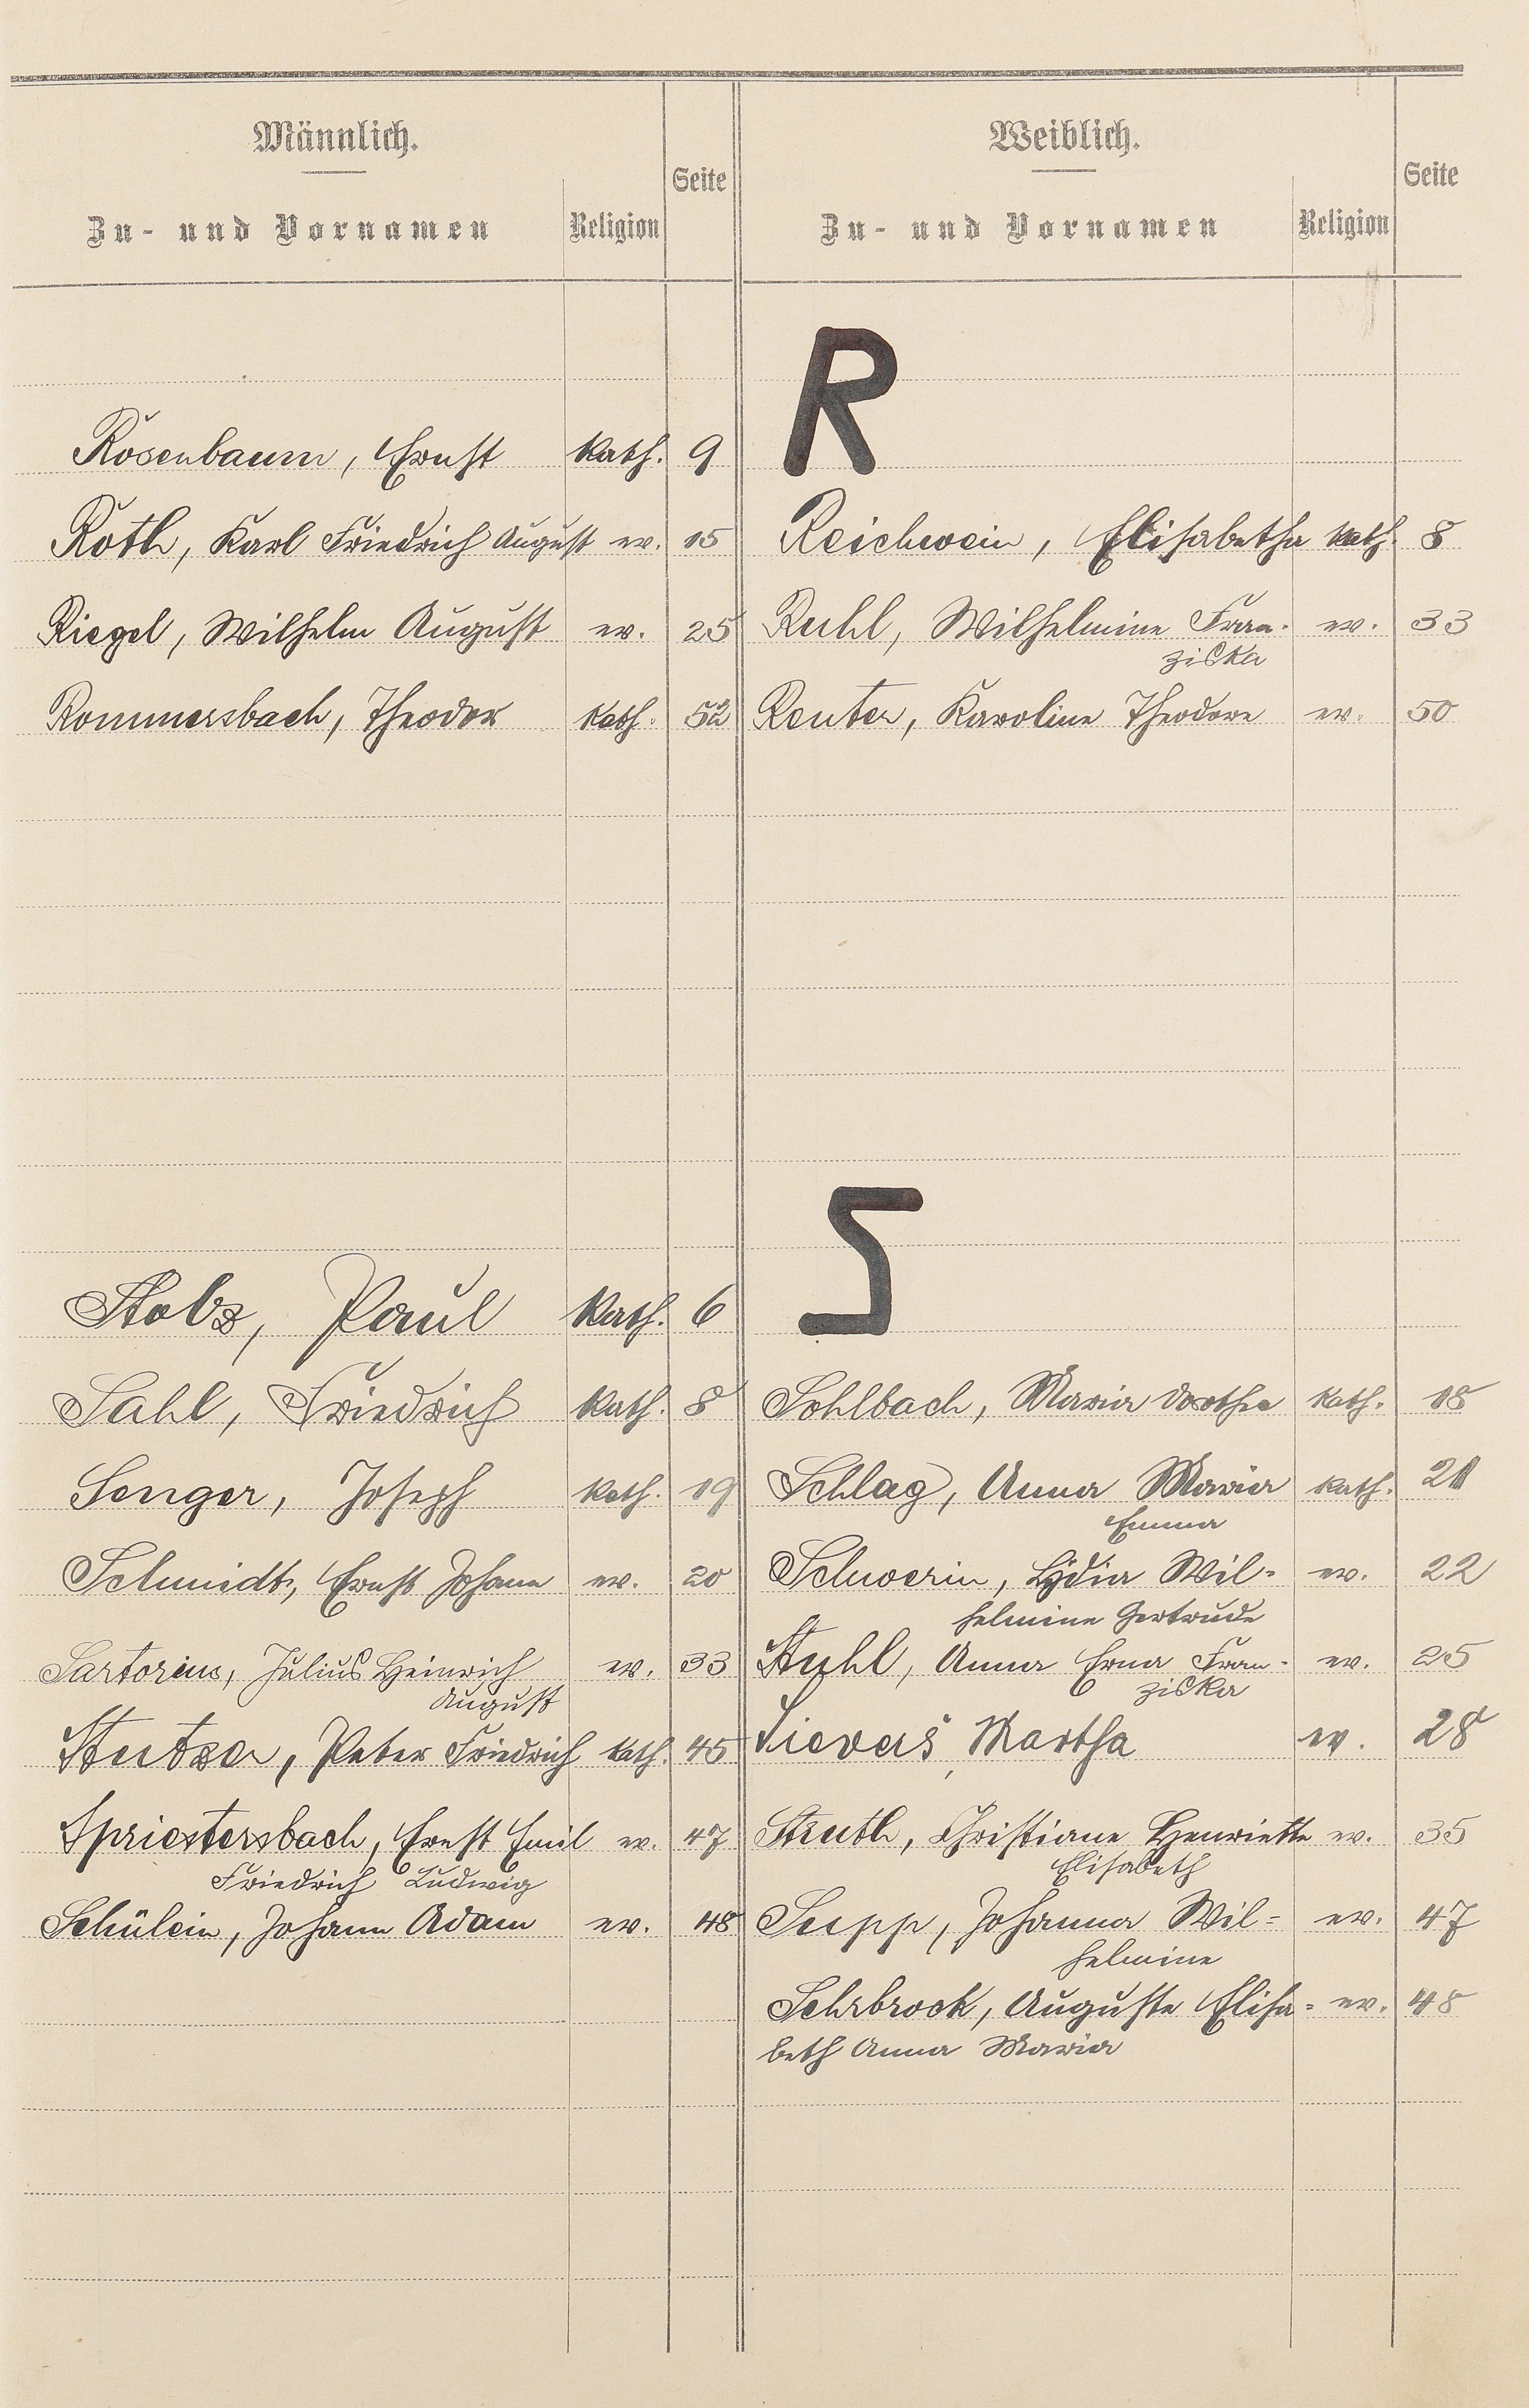 Männlich.
Zu- und Vornamen Religion Seite
Weiblich.
Zu- und Vornamen Religion Seite
R
Rosenbaum, Ernst kath. 9
Roth, Karl Friedrich August ev. 15 Reichwein, Elisabetha kath. 8
Riegel, Wilhelm August ev. 25 Ruhl, Wilhelmine Fran- ev. 33
ziska
Rommersbach, Theodor kath. 52 Reuter, Karoline Theodore ev. 50
S
Stolz, Paul kath. 6
Sahl, Friedrich kath. 8 Sohlbach, Maria Dorothea kath. 18
Senger, Joseph kath. 19 Schlag, Anna Maria kath. 21
Emma
Schmidt, Ernst Johann ev. 20 Schwerin, Lydia Wil- ev. 22
helmine Gertrude
Sartorius, Julius Heinrich ev. 33 Stuhl, Anna Erna Fran- ev. 25
August ziska
Stutzer, Peter Friedrich kath. 45 Sievers, Martha ev. 28
Spriestersbach, Ernst Emil ev. 47 Struth, Christiane Henriette ev. 35
Friedrich Ludwig Elisabeth
Schülein, Johann Adam ev. 48 Supp, Johanna Wil= ev. 47
helmine
Sehrbrock, Auguste Elisa= ev. 48
beth Anna Maria